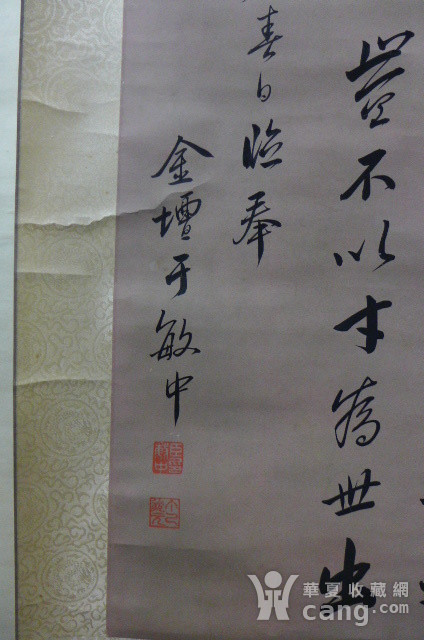 豈不以才為世出
春日臨奉
金壇于敏中
華夏收藏網
cang.com